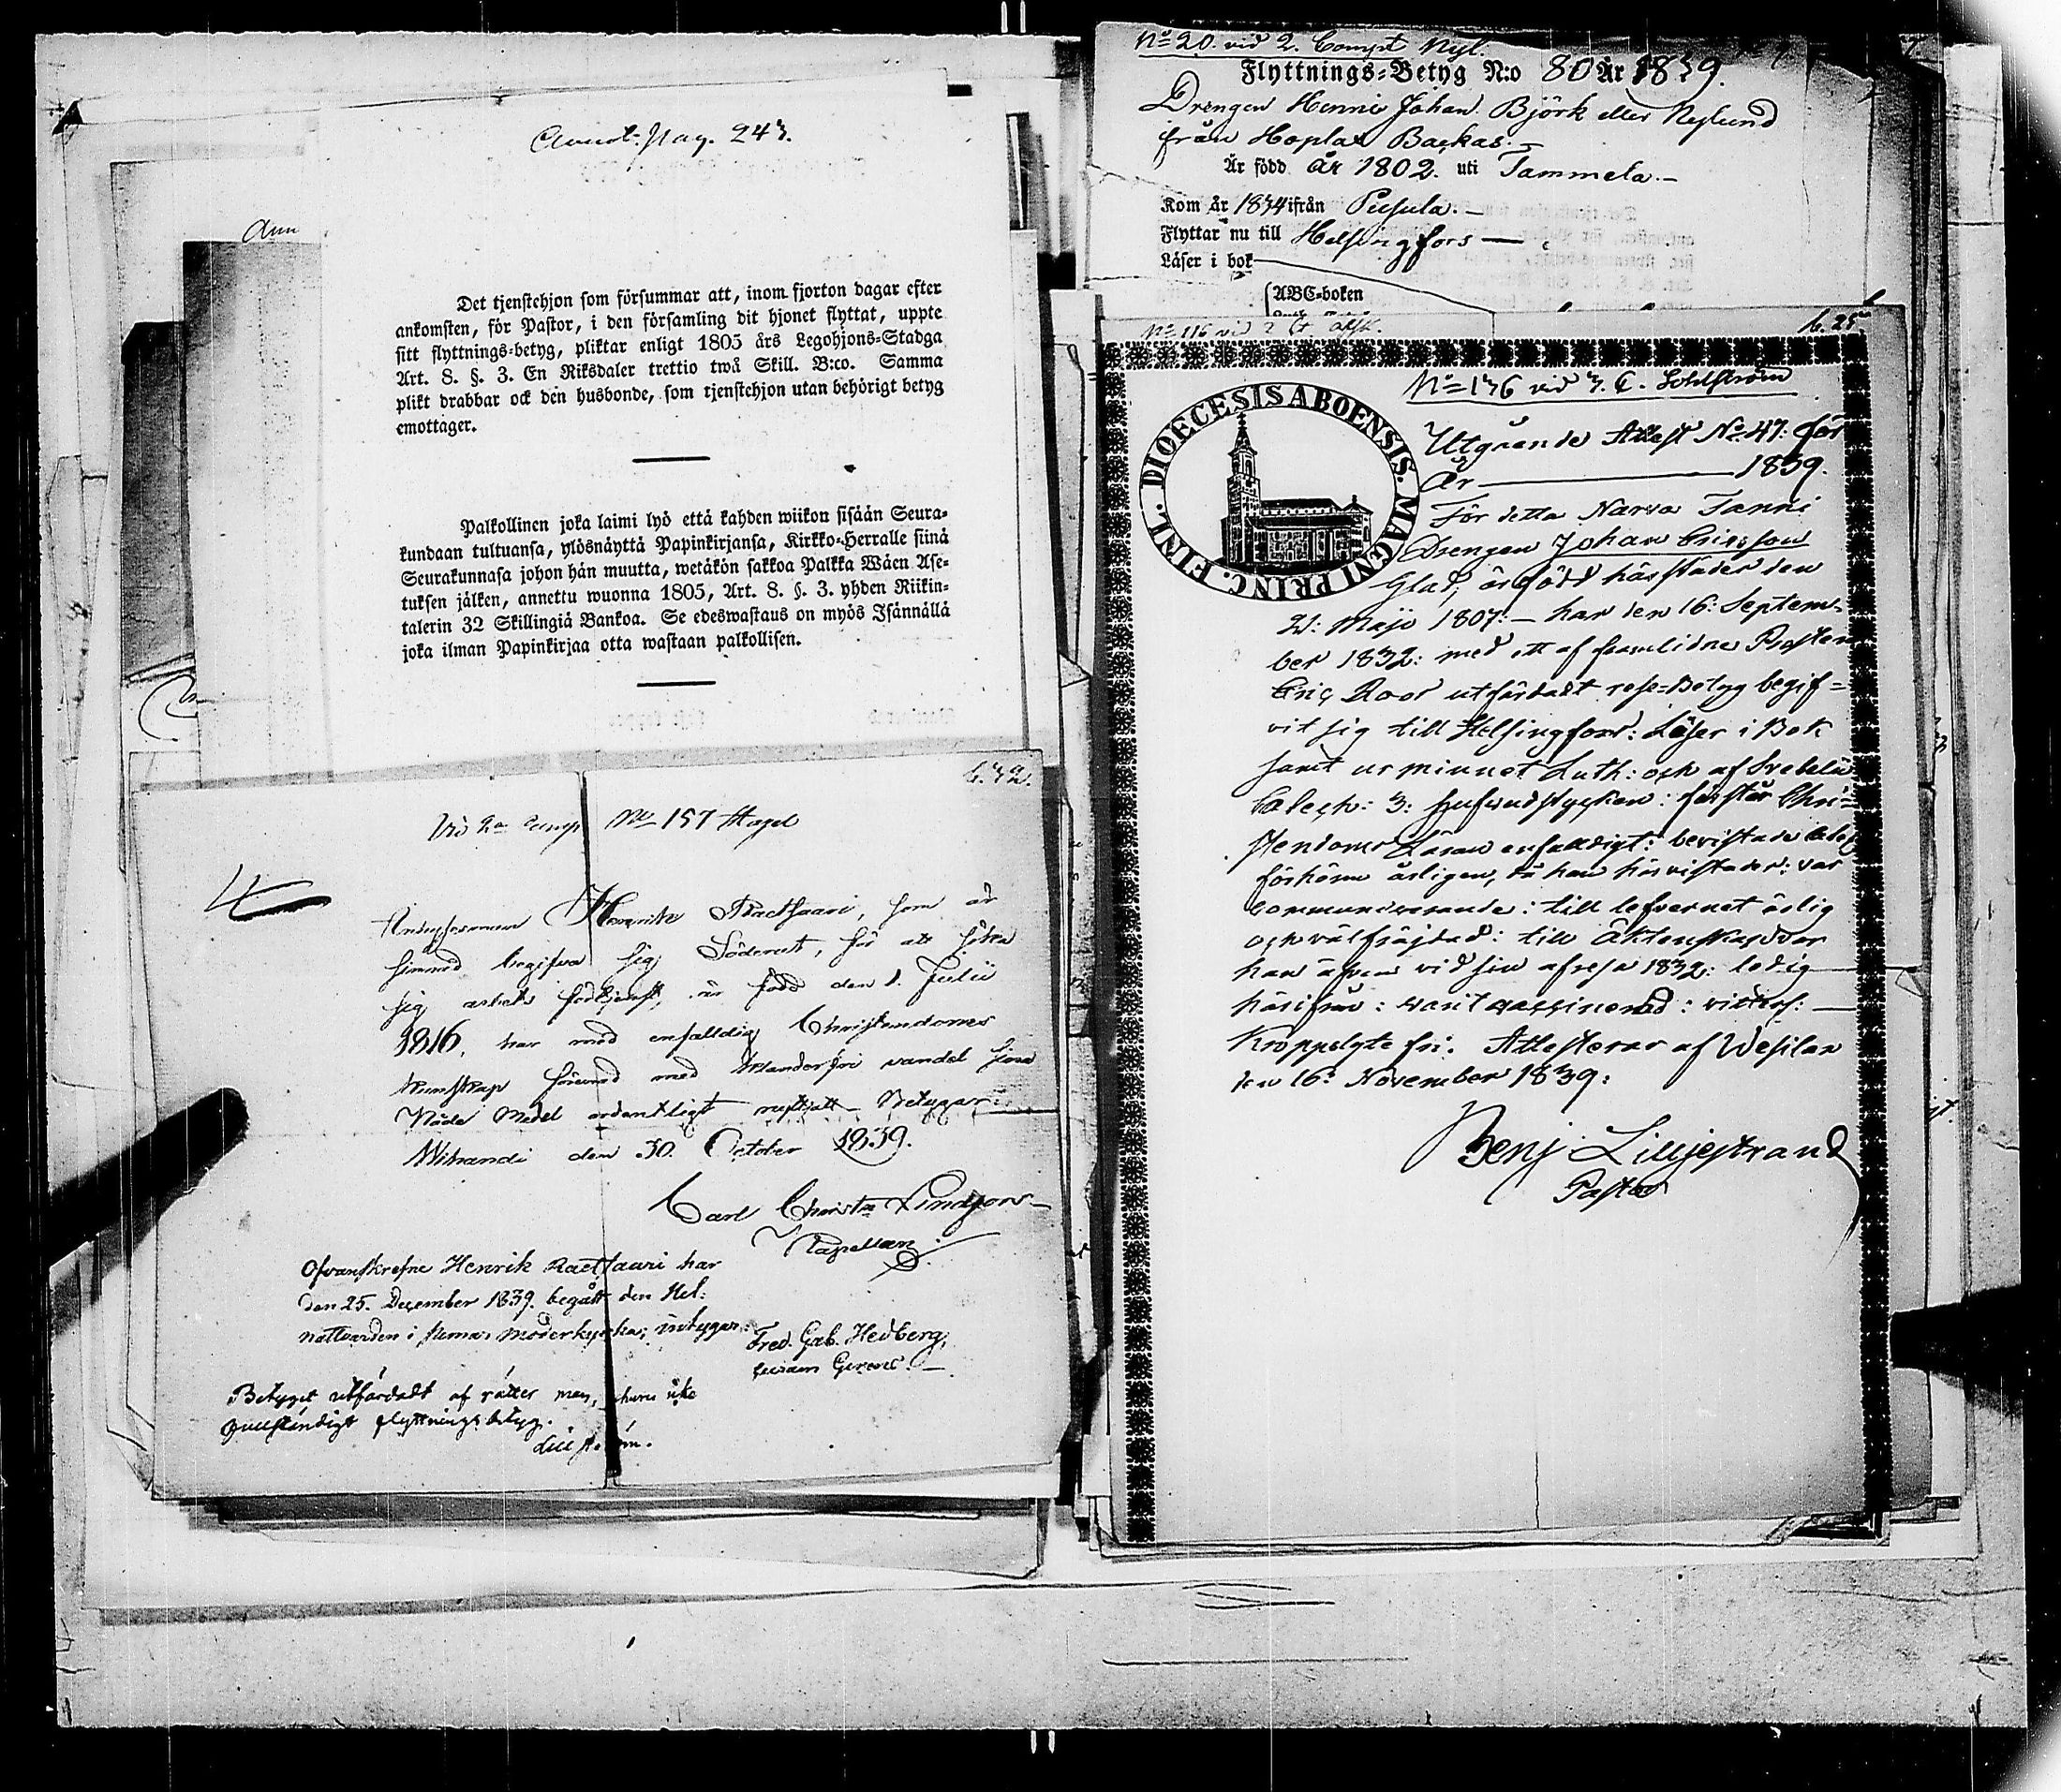 Annot: Pag. 243.
Ann
Det tjenstehjon som försummar att, inom fjorton dagar efter
ankomsten, för Pastor, i den församling dit hjonet flyttat, uppte
sitt flyttnings-betyg, pliktar enligt 1805 års Legohjons-Stadga
Art. 8. §. 3. En Riksdaler trettio twå Skill. B:co. Samma
plikt drabbar ock den husbonde, som tjenstehjon utan behörigt betyg
emottager.
Palkollinen joka laimi lyö että kahden wiikon sisään Seura-
kundaan tultuansa, ylösnäyttä Papinkirjansa, Kirkko-Herralle siinä
Seurakunnasa johon hän muutta, wetäkön sakkoa Palkka Wäen Ase-
tuksen jälken, annettu wuonna 1805, Art. 8. §. 3. yhden Riikin-
talerin 32 Skillingiä Bankoa. Se edeswastaus on myös Isännällä
joka ilman Papinkirjaa otta wastaan palkollisen.
b. 32.
Vid 2a Comp No 157
Henrik Raetsaari, som är
sinnad begifva sig Söderut, för att söka
sig arbets förtjenst, är född den 1. Julii
1816, har med enfalldig Christendoms
kunskap förenad med klanderfri vandel sina
Nåde Medel ordentligt nyttjatt. Betygar
den 30. October 1839.
Carl Christn
Kapellan.
Ofvanskrefne Henrik Raetsaari har
den 25. December 1839. begått den Hel:
nattvarden i Kemi moderkyrka; intygar:
Fred. Gab. Hedberg,
curam Gerens.
Betyget utfärdadt af rätter man, ehuru icke
fullständigt flyttningsbetyg.
No 20. vid 2. Comp: Nyl.
Flyttnings-Betyg N:o 80 År 1839.
Drengen Henric Johan Björk eller Nylund
från Hoplax Backas.
Är född År 1802. uti Tammela.
Kom år 1834 ifrån Pusula.
Flyttar nu till Helsingfors
Läser i bok
ABC-boken
No 116 vid 2
b. 25.
DIOECESIS ABOENSIS. MAGNI PRINC. FINL.
No 136 vid 3. C. Sohlström
Utgående Attest No 47: för
År 1839.
För detta Narva Tanni
Drengen Johan Ericsson
Glad, är född härstädes den
21: Maji 1807: har den 16: Septem-
ber 1832: med ett af framlidne Prosten
Eric Roos utfärdadt rese-Betyg begif-
vit sig till Helsingfors: Läser i Bok
samt ur minnet Luth: och af Svebelii
Catech: 3: hufvudstycken: förstår Chri-
stendoms Läran enfaldigt: bevistade Läs-
förhören årligen, då han här vistades: var
communicerande: till lefvernet ärlig
och välfräjdad: till Äktenskap var
han äfven vid sin afresa 1832: ledig
härifrån: varit vaccinerad: vitters:
Kroppslyte fri. Attesterar af Wesilax
den 16: November 1839:
Benj. Lilljestrand
Pastor